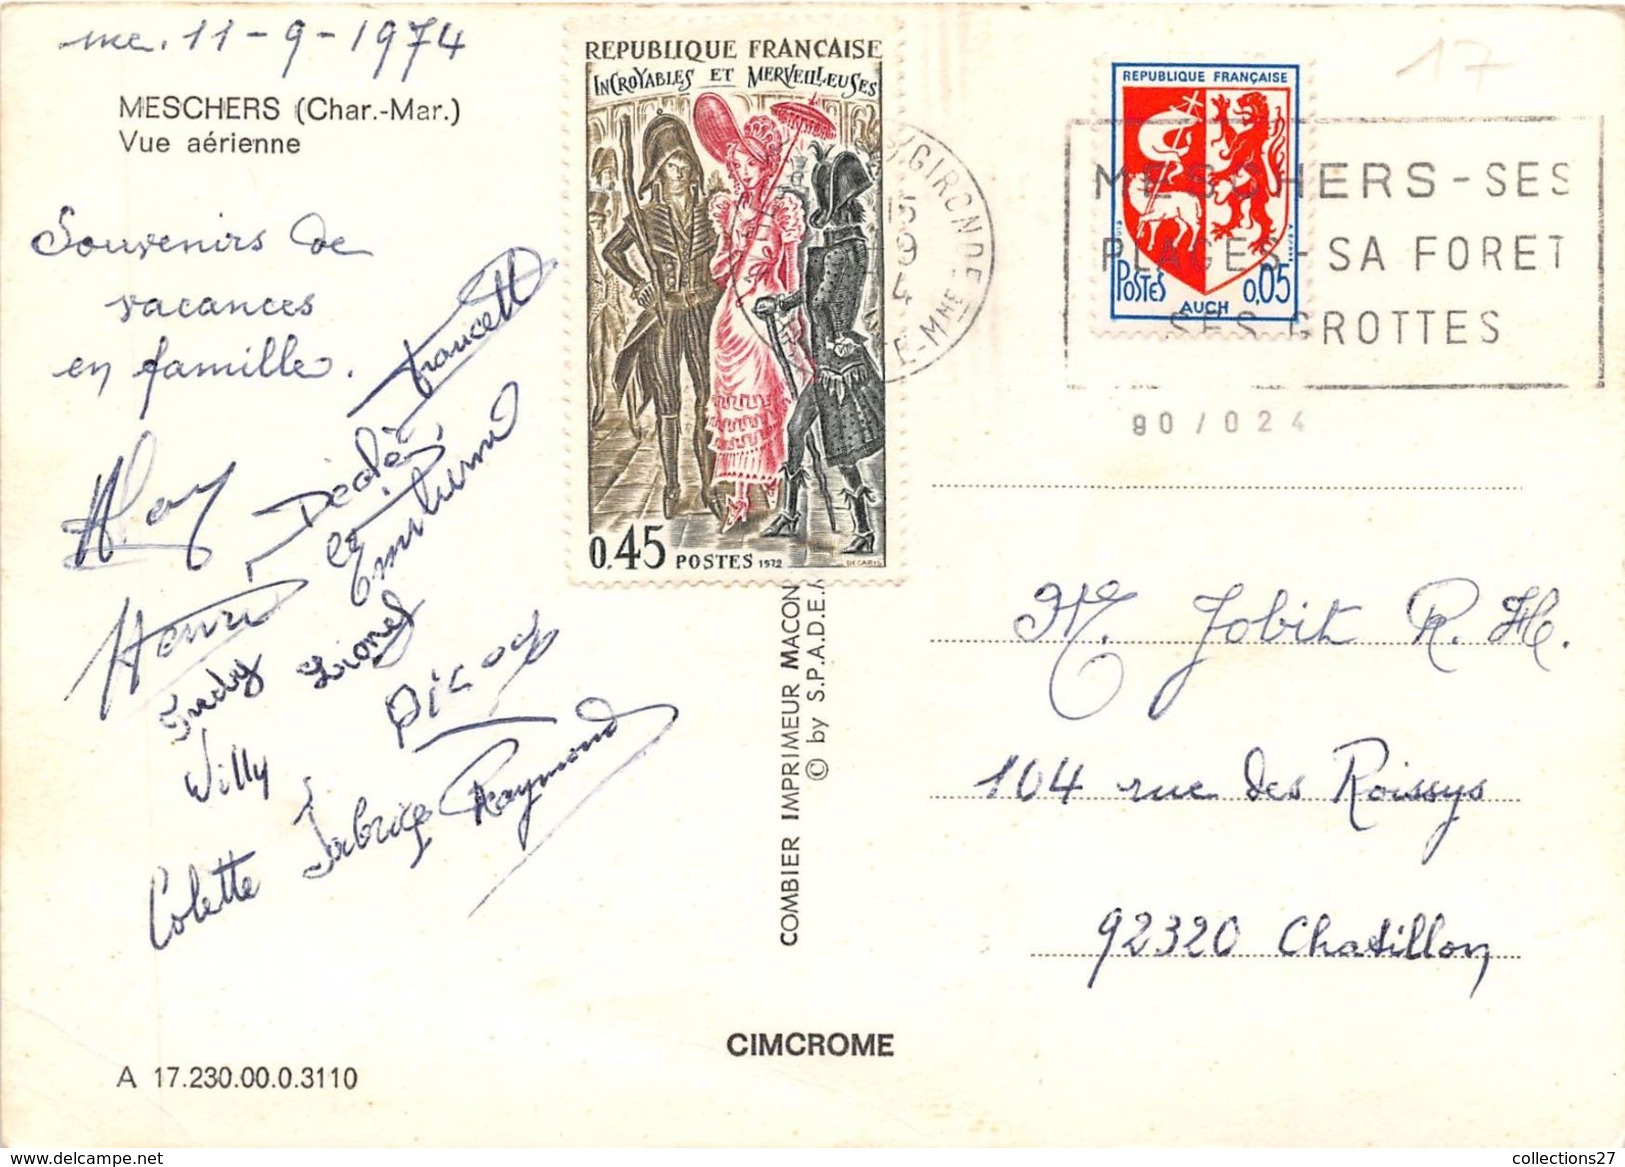 me. 11-9-1974
MESCHERS (Char.-Mar.)
Vue aérienne
Souvenirs de
vacances
en famille.
Francett
Dédé,
et
Henri
Judy Lionel
Willy
Picod
Colette Fabrice Raymond
A 17.230.00.0.3110
REPUBLIQUE FRANÇAISE
INCROYABLES ET MERVEILLEUSES
0.45 POSTES 1972
DECARIS
GIRONDE
15
9
E-MME
COMBIER IMPRIMEUR MACON
© by S.P.A.D.E.
CIMCROME
17
REPUBLIQUE FRANÇAISE
POSTES 0,05
AUCH
MESCHERS - SES
PLAGES - SA FORET
SES GROTTES
90 / 024
M. Jobit R. H.
104 rue des Roissys
92320 Chatillon
collections27